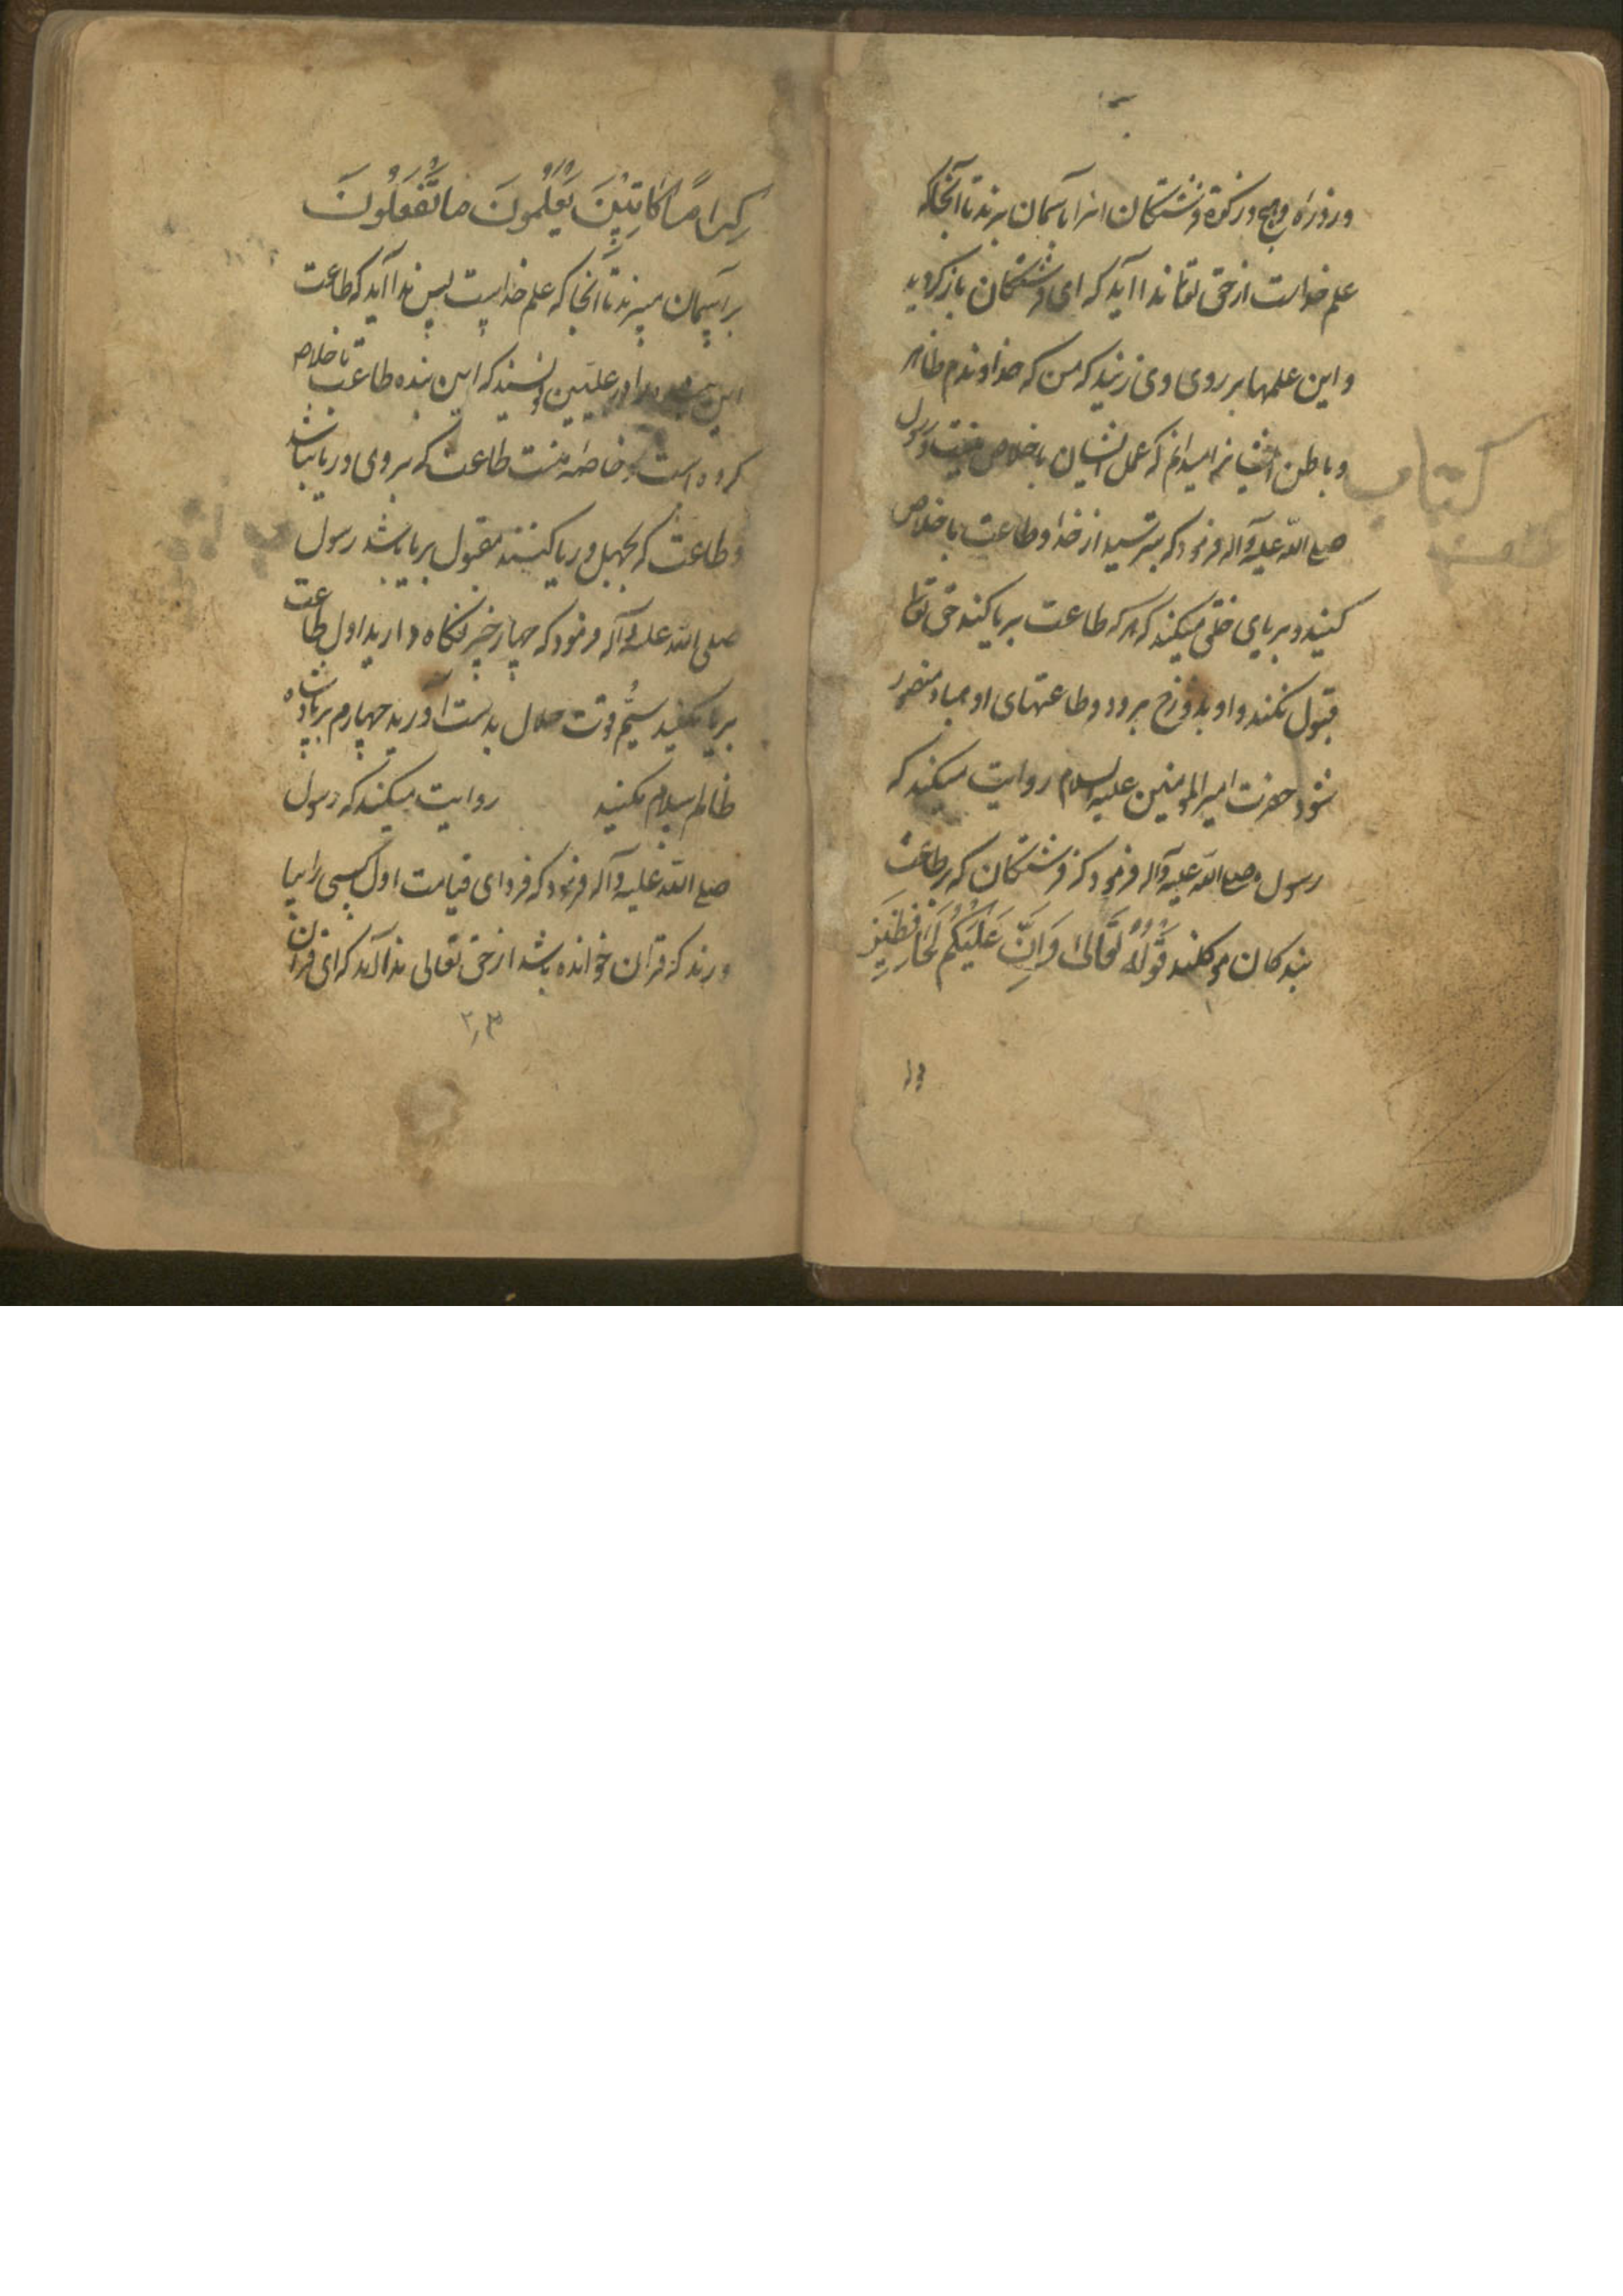 و روزه و حج و زکوة فرشتکان انرا باسمان برند تا آنجا که
علم خداست از حق تعالی ندا آید که ای فرشتکان باز کردید
و این عملها بر روی وی زنید که من که خداوندم ظاهر
و باطن ایشانرا میدانم که عمل ایشان باخلاص نیست رسول
صلی الله علیه وآله فرمود که بترسید از خدا و طاعت باخلاص
کنید و بریای خلق مکنید که هر که طاعت بریا کند حق تعالی
قبول نکند و او بدوزخ برود و طاعتهای او هباء منثور
شود حضرت امیر المومنین علیه السلام روایت میکند که
رسول صلی الله علیه وآله فرمود که فرشتکان که بر طاعت
بندکان موکلند قَوْلُهُ تَعَالیٰ وَاِنَّ عَلَیْکُمْ لَحَافِظِیْنَ
کتاب
کِرَامًا کَاتِبِیْنَ یَعْلَمُونَ مَا تَفْعَلُونَ
بر آسمان میبرند تا آنجا که علم خداست پس ندا آید که طاعت
این بنده را در علیین نویسید که این بنده طاعت باخلاص
کرده است و خاصه منست طاعت که بروی و ریا نباشد
و طاعت که بجهل و ریا کنند مقبول نباشد رسول
صلی الله علیه وآله فرمود که چهار چیز نکاه دارید اول طاعت
بریا مکنید سیّم قوت حلال بدست آورید چهارم بر پادشاه
ظالم سلام مکنید روایت میکند که رسول
صلی الله علیه وآله فرمود که فردای قیامت اول کسی را بیا
ورند که قرآن خوانده باشد از حق تعالی ندا آید که ای قرآن